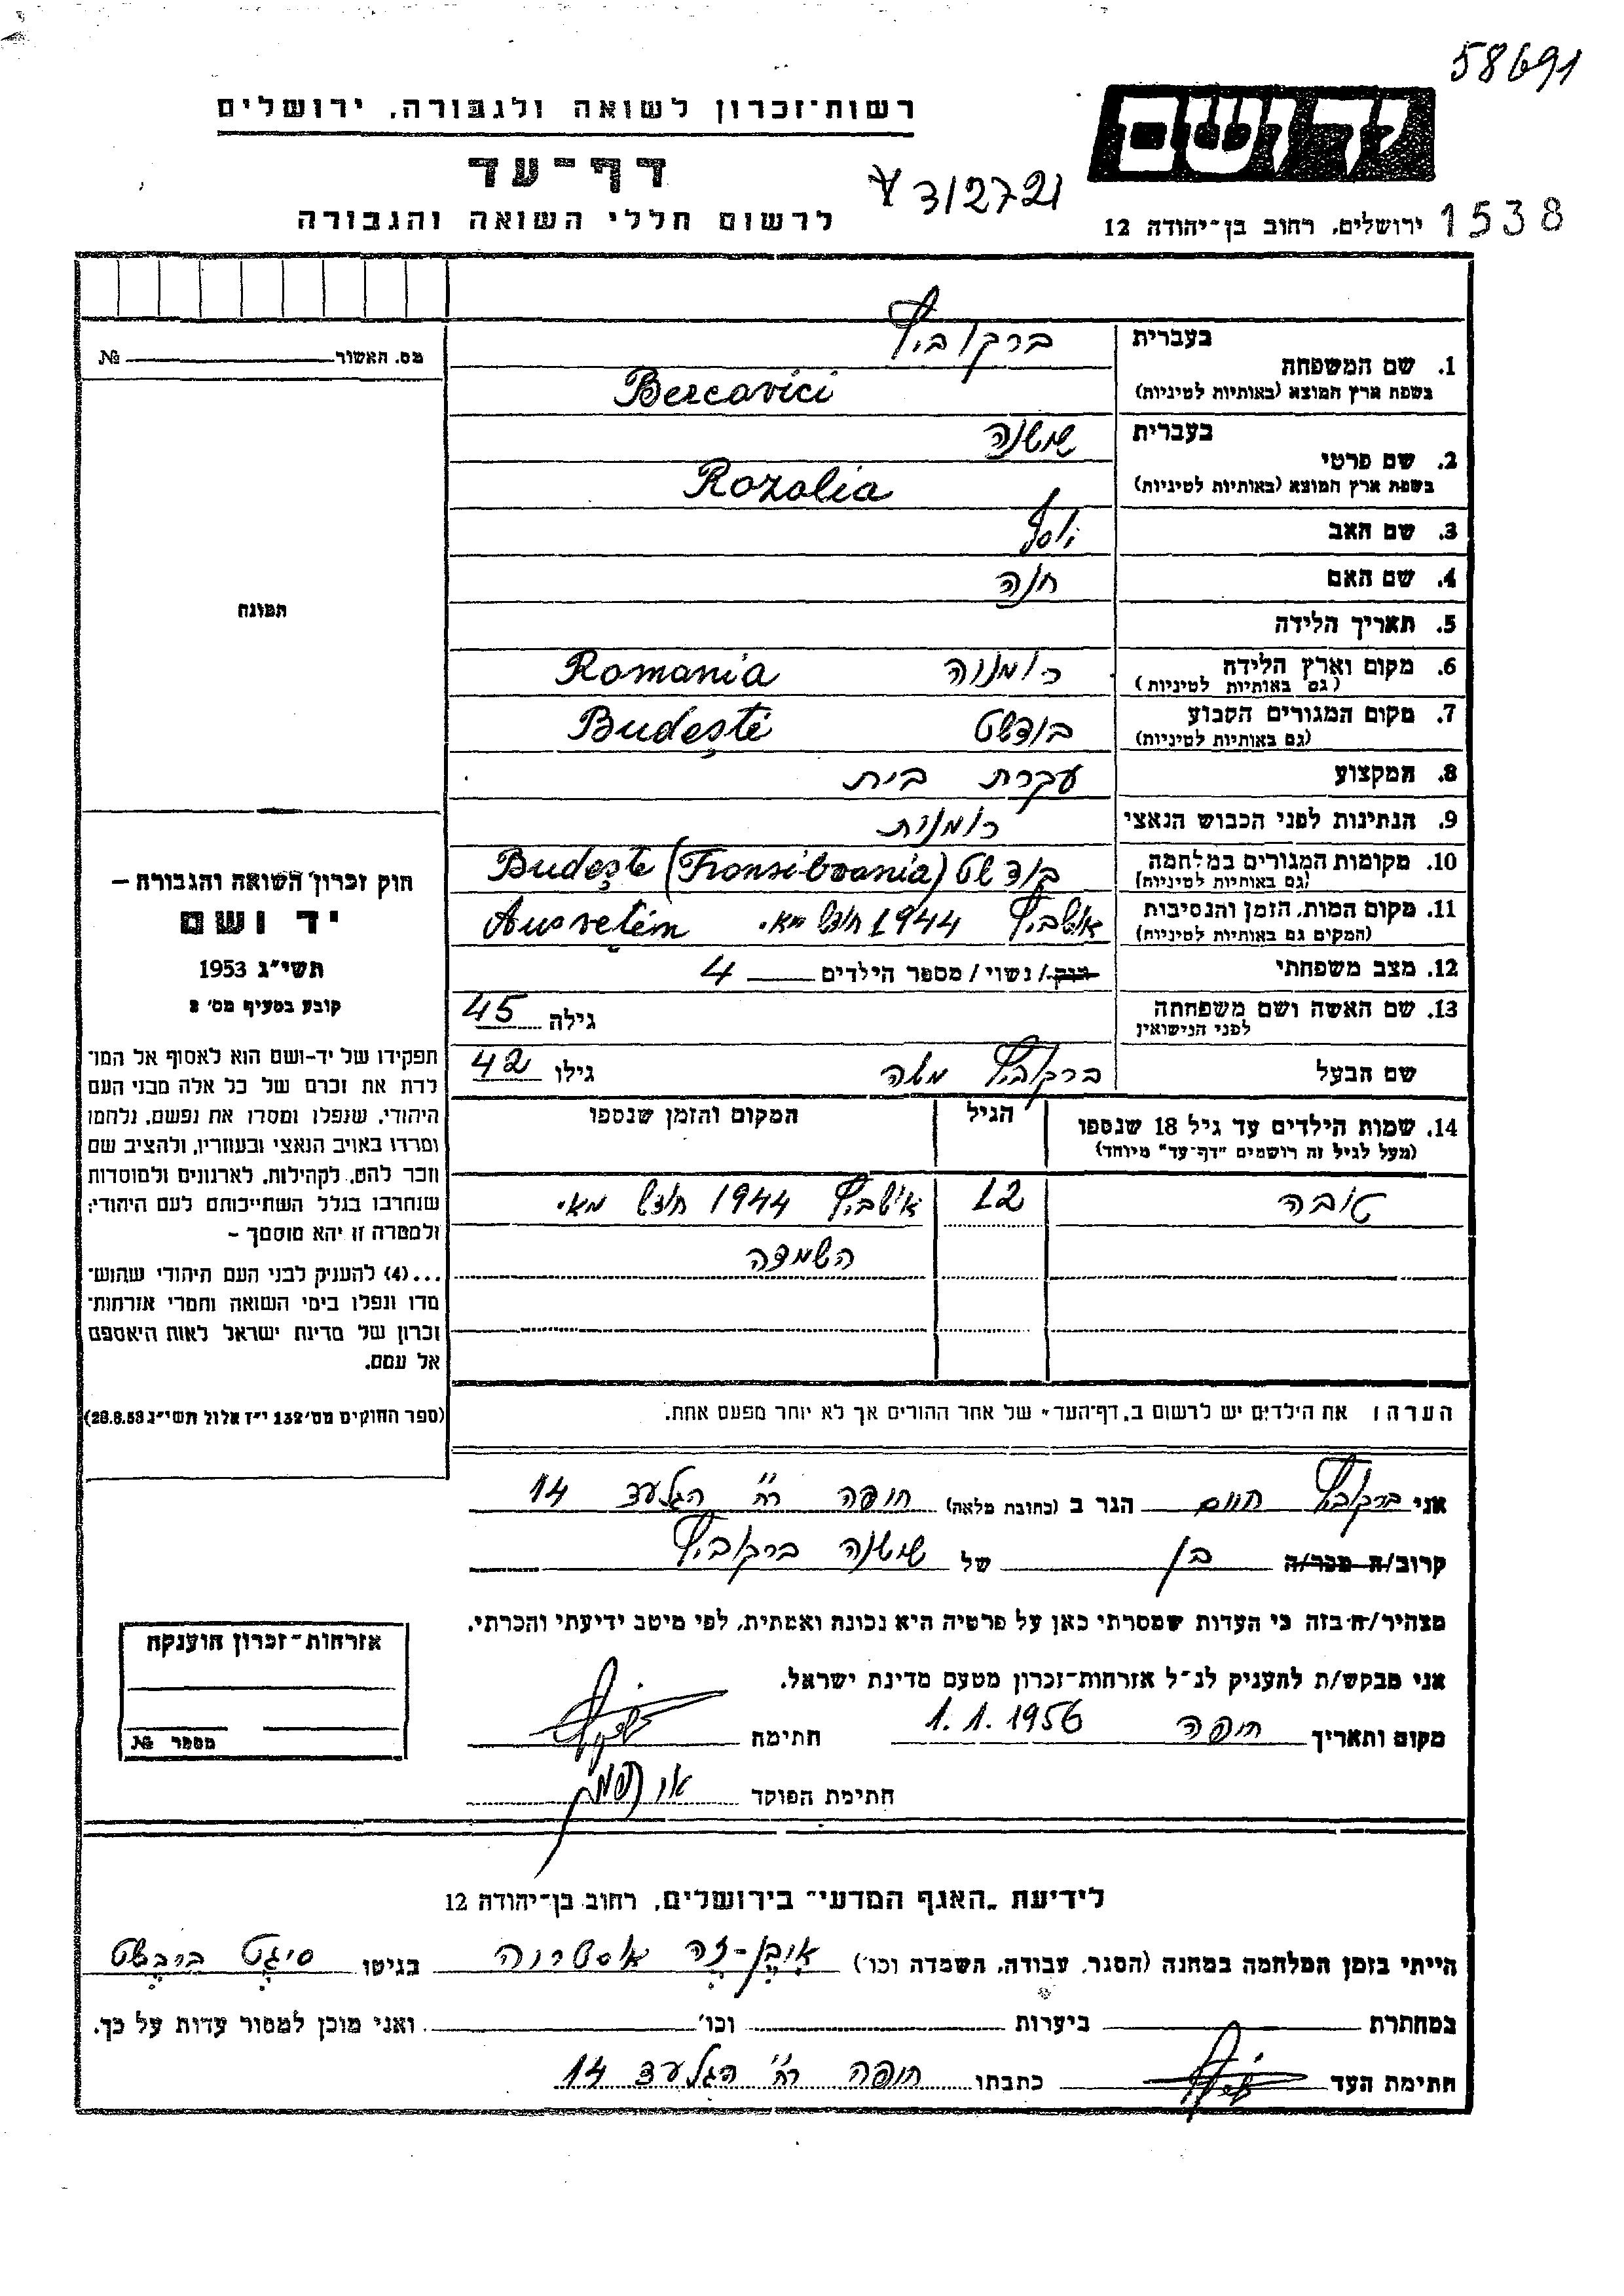 58691
רשות־זכרון לשואה ולגבורה, ירושלים
דף־עד
312721
לרשום חללי השואה והגבורה
ירושלים, רחוב בן־יהודה 12
1538
מס. האשור № 
בעברית
ברקוביץ
1. שם המשפחה
בשפת ארץ המוצא (באותיות לטיניות)
Bercovici
בעברית
שושנה
2. שם פרטי
בשפת ארץ המוצא (באותיות לטיניות)
Rozalia
3. שם האב יוסף
4. שם האם חנה
5. תאריך הלידה
6. מקום וארץ הלידה רומניה Romania
(גם באותיות לטיניות)
7. מקום המגורים הקבוע בודשט Budeşti
(גם באותיות לטיניות)
8. המקצוע עקרת בית
9. הנתינות לפני הכבוש הנאצי רומנית
10. מקומות המגורים במלחמה בודשט Budeşte (Transilvania)
(גם באותיות לטיניות)
11. מקום המות, הזמן והנסיבות אושביץ 1944 חודש מאי
(המקום גם באותיות לטיניות)
12. מצב משפחתי רוק/ נשוי / מספר הילדים 4
13. שם האשה ושם משפחתה גילה 45
לפני הנישואין
שם הבעל ברקוביץ משה גילו 42
14. שמות הילדים עד גיל 18 שנספו הגיל המקום והזמן שנספו
(מעל לגיל זה רושמים "דף־עד" מיוחד)
טובה 12 אושביץ 1944 חודש מאי
השמדה
הערה: את הילדים יש לרשום ב„דף־העד" של אחד ההורים אך לא יותר מפעם אחת.
תמונה
חוק זכרון השואה והגבורה –
יד ושם
תשי"ג 1953
קובע בסעיף מס' 2
תפקידו של יד-ושם הוא לאסוף אל המו־
לדת את זכרם של כל אלה מבני העם
היהודי, שנפלו ומסרו את נפשם, נלחמו
ומרדו באויב הנאצי ובעוזריו, ולהציב שם
וזכר להם, לקהילות, לארגונים ולמוסדות
שנחרבו בגלל השתייכותם לעם היהודי;
ולמטרה זו יהא מוסמך –
...(4) להעניק לבני העם היהודי שהוש־
מדו ונפלו בימי השואה והמרי אזרחות־
זכרון של מדינת ישראל לאות היאספם
אל עמם.
(ספר החוקים מס' 132 י"ז אלול תשי"ג 28.8.53)
אני ברקוביץ חיים הגר ב (כתובת מלאה) חיפה רח' הגלעד 14
קרוב/ה מכר/ה בן של שושנה ברקוביץ
מצהיר/ה בזה כי העדות שמסרתי כאן על פרטיה היא נכונה ואמתית, לפי מיטב ידיעתי והכרתי.
אני מבקש/ת להעניק לנ"ל אזרחות־זכרון מטעם מדינת ישראל.
מקום ותאריך חיפה 1.1.1956 חתימה
חתימת הפוקד
אזרחות־זכרון הוענקה
מספר №
לידיעת „האגף המדעי" בירושלים, רחוב בן־יהודה 12
הייתי בזמן המלחמה במחנה (הסגר, עבודה, השמדה וכו') בגיטו סיגט
במחתרת ביערות וכו' ואני מוכן למסור עדות על כך.
חתימת העד כתבתו חיפה רח' הגלעד 14